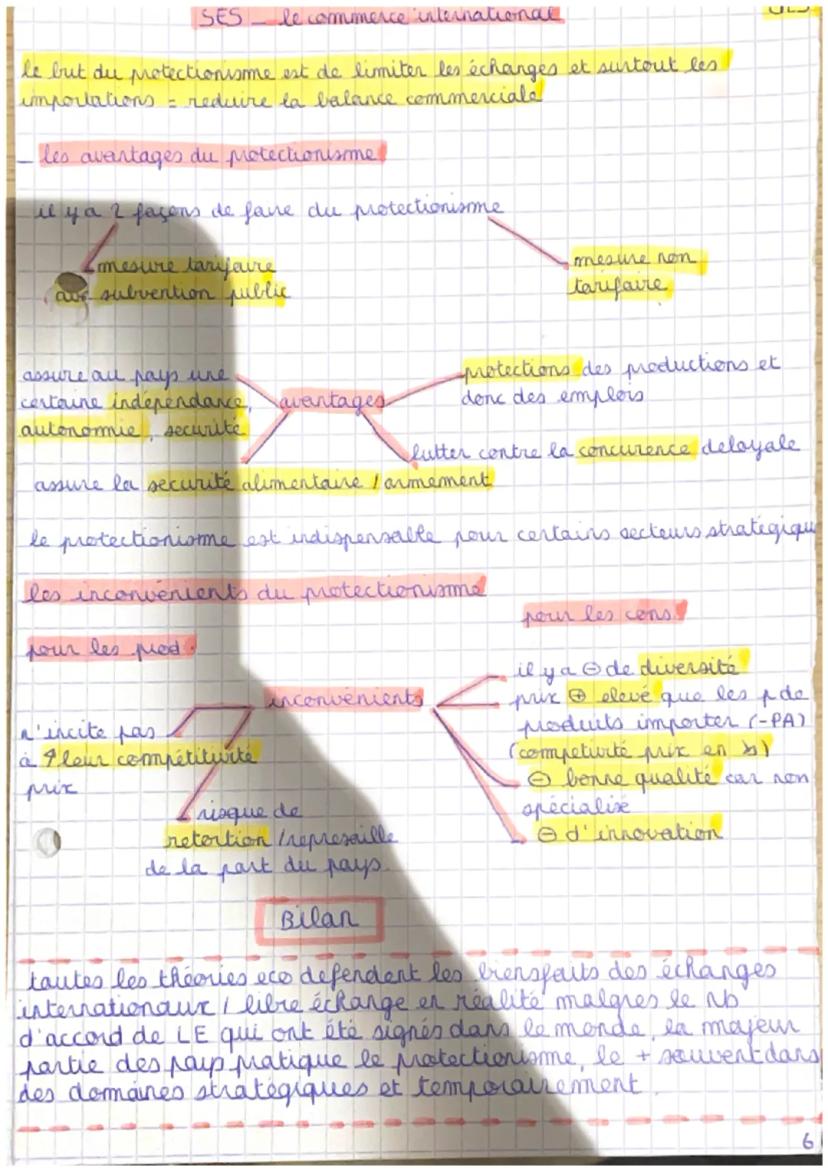 SES _ le commerce international
le but du protectionisme est de limiter les échanges et surtout les
importations = reduire la balance commerciale
_ les avantages du protectionisme
il y a 2 façons de faire du protectionisme
mesure tarifaire
subvention public
mesure non
tarifaire
assure au pays une
certaine indépendance,
autonomie, securité
avantages
protections des productions et
donc des emplois
lutter contre la concurence deloyale
assure la securité alimentaire / armement
le protectionisme est indispensable pour certains secteurs stratégiqu
les inconvénients du protectionisme
pour les cons.
pour les prod.
inconvénients
n'incite pas
à ↑ leur compétitivité
prix
risque de
retortion / represaille
de la part du pays.
il y a ⊖ de diversité
prix ⊕ elevé que les p de
produits importer (-PA)
(competivité prix en ↘)
⊖ bonne qualité car non
spécialisé
⊖ d'innovation
Bilan
toutes les théories eco defendent les biensfaits des échanges
internationaux / libre échange en réalité malgres le nb
d'accord de LE qui ont été signés dans le monde, la majeur
partie des pays pratique le protectionisme, le + souvent dans
des domaines stratégiques et temporairement.
6